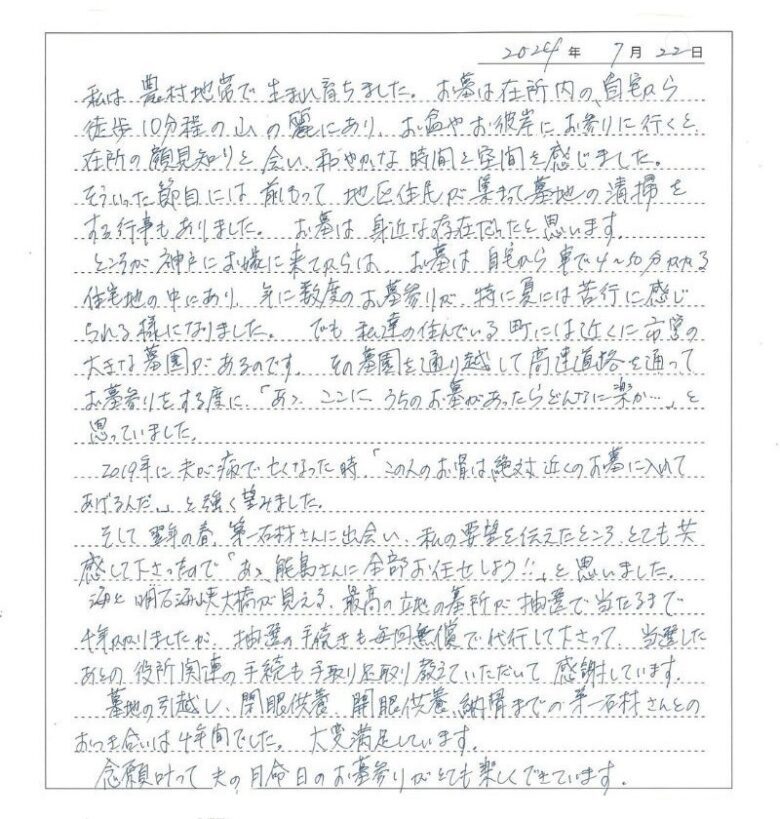 2024年 7月 22日
私は 農村地帯で 生まれ育ちました。 お墓は在所内の、自宅から
徒歩10分程の山の麓にあり、お盆やお彼岸にお参りに行くと
在所の顔見知りと会い、和やかな時間と空間を感じました。
そういった節目には 前もって 地区住民が集まって墓地の清掃を
する行事もありました。 お墓は 身近な存在だったと思います。
ところが 神戸にお嫁に来てからは、お墓は 自宅から 車で4~50分かかる
住宅地の中にあり、年に数度のお墓参りが、特に夏には苦行に感じ
られる様になりました。 でも 私達の住んでいる町には近くに市営の
大きな墓園があるのです。 その墓園を通り越して高速道路を通って
お墓参りをする度に、「あゝ ここに うちのお墓があったらどんなに楽か…」と
思っていました。
2019年に夫が病で亡くなった時、「この人のお骨は絶対近くのお墓に入れて
あげるんだ。」と強く望みました。
そして 翌年の春、第一石材さんに出会い、私の要望を伝えたところとても共
感して下さったので「あゝ 能島さんに全部お任せしよう!!」と思いました。
海と 明石海峡大橋が見える、最高の立地の墓所が抽選で当たるまで
4年かかりましたが、抽選の手続きも毎回無償で代行して下さって、当選した
あとの役所関連の手続も手取り足取り教えていただいて 感謝しています。
墓地の引越し、閉眼供養、開眼供養、納骨までの第一石材さんとの
おつき合いは4年間でした。 大変満足しています。
念願叶って 夫の月命日のお墓参りがとても楽しくできています。